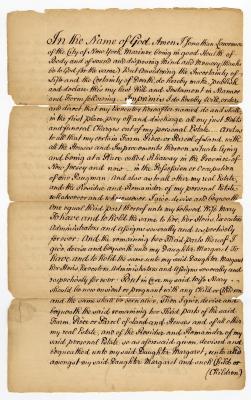 In the Name of God, Amen I Jonathan Lawrence
of the City of New York, Mariner being in good Health of
Body and of sound and disposing Mind and Memory (thanks
be to God for the same) But Considering the Uncertainty of
Life and the Certainty of Death do hereby make, publish
and declare this my last Will and Testament in Manner
and Form following, I do hereby Will, order
and direct that my Executors hereafter named do and shall
in the first place pay off and discharge all my just Debts
and funeral Charges out of my personal Estate. and
to all that my certain Farm Piece or Parcel of Land with
all the Houses and Improvements thereon situate lying
and being at a Place called Rahaway in the Province of
New Jersey and now in the Possession or Occupation
of one Bergman. And also in and to all other my real Estate,
and the Residue and Remainder of my personal Estate
whatsoever and wheresoever I give, devise and bequeath
one equal third part thereof unto my beloved Wife Mary
To have and to hold the same to her, her Heirs Executors
Administrators and Assigns severally and respectively
for ever: And the remaining two Third Parts thereof I
give, devise and bequeath unto my Daughter Margaret To
have and to hold the same unto my said Daughter Margaret
her Heirs Executors Administrators and Assigns severally and
respectively for ever. But in Case my said Wife Mary
should be now ensient or pregnant with any Child or Children
and the same shall be born alive, Then I give, devise and
bequeath the said remaining two Third parts of the said
Farm Piece or Parcel of Land and Houses and of all other
my real Estate, and of the Residue and Remainder of my
said personal Estate so as aforesaid given, devised and
bequeathed unto my said Daughter Margaret, unto and
amongst my said Daughter Margaret and such Child or
(Children)